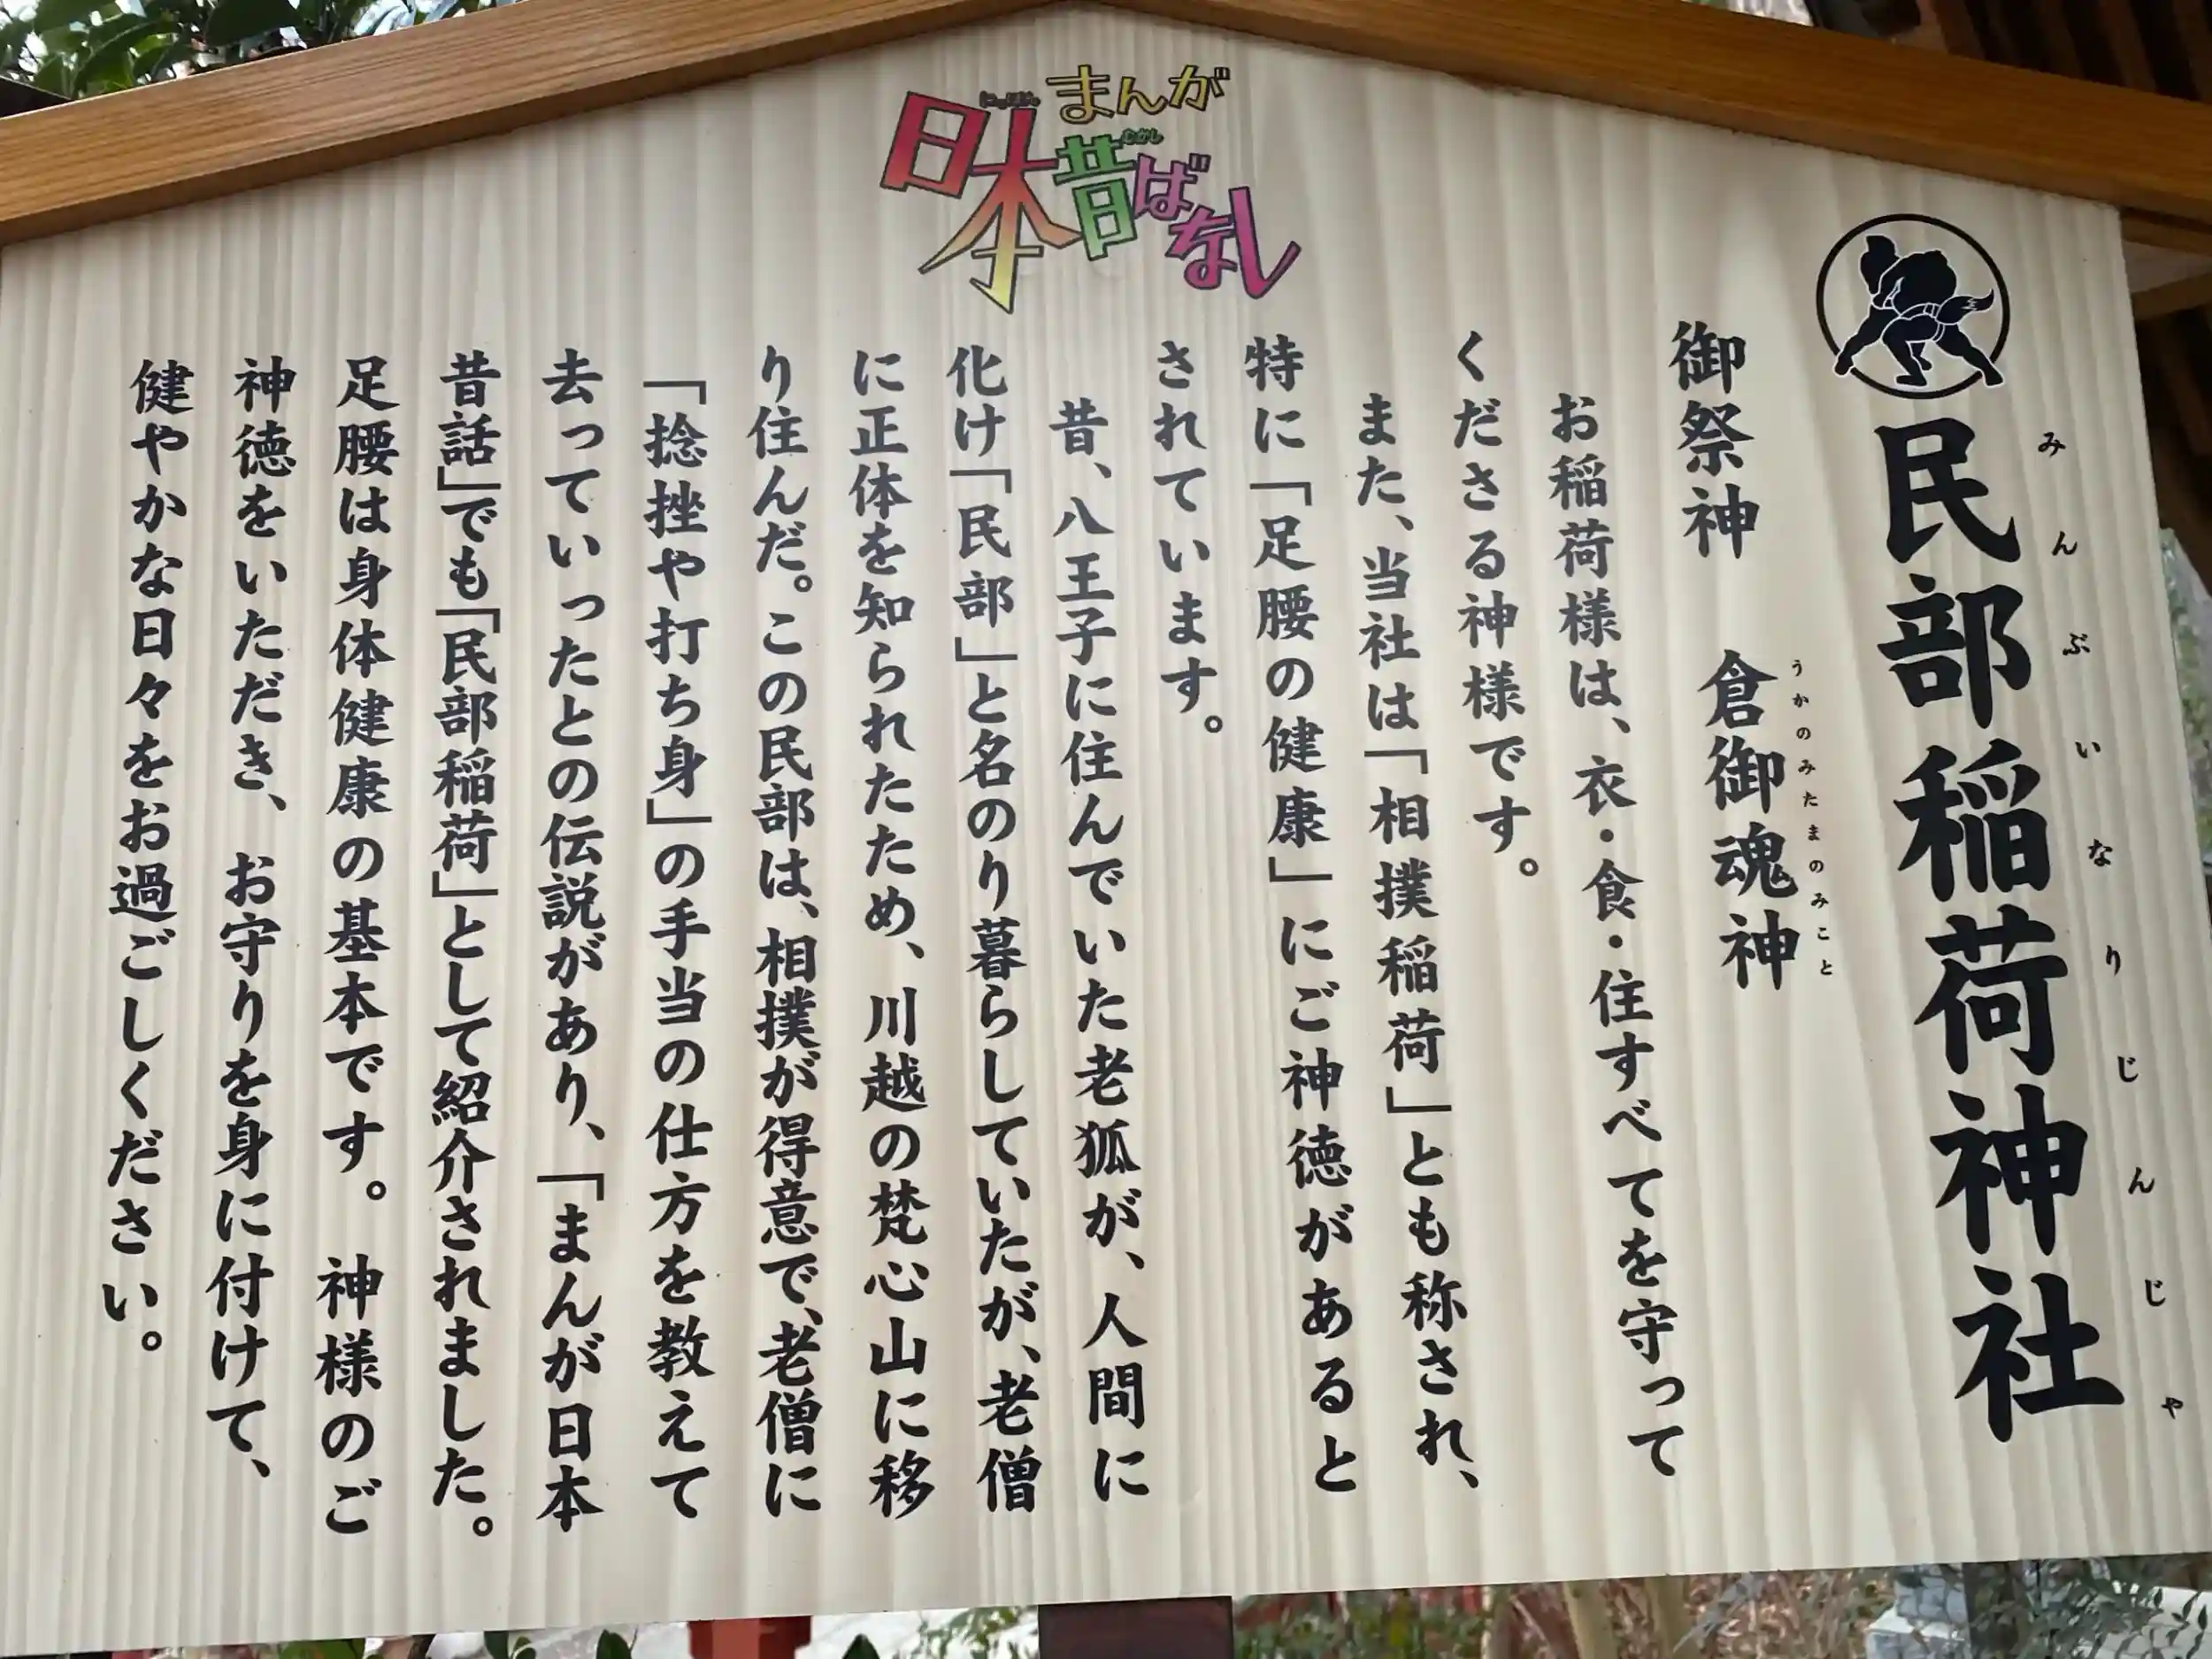 まんが
にっぽん
日本
むかし
昔ばなし
みんぶいなりじんじゃ
民部稲荷神社
うかのみたまのみこと
御祭神 倉御魂神
お稲荷様は、衣・食・住すべてを守って
くださる神様です。
また、当社は「相撲稲荷」とも称され、
特に「足腰の健康」にご神徳があると
されています。
昔、八王子に住んでいた老狐が、人間に
化け「民部」と名のり暮らしていたが、老僧
に正体を知られたため、川越の梵心山に移
り住んだ。この民部は、相撲が得意で、老僧に
「捻挫や打ち身」の手当の仕方を教えて
去っていったとの伝説があり、「まんが日本
昔話」でも「民部稲荷」として紹介されました。
足腰は身体健康の基本です。神様のご
神徳をいただき、お守りを身に付けて、
健やかな日々をお過ごしください。